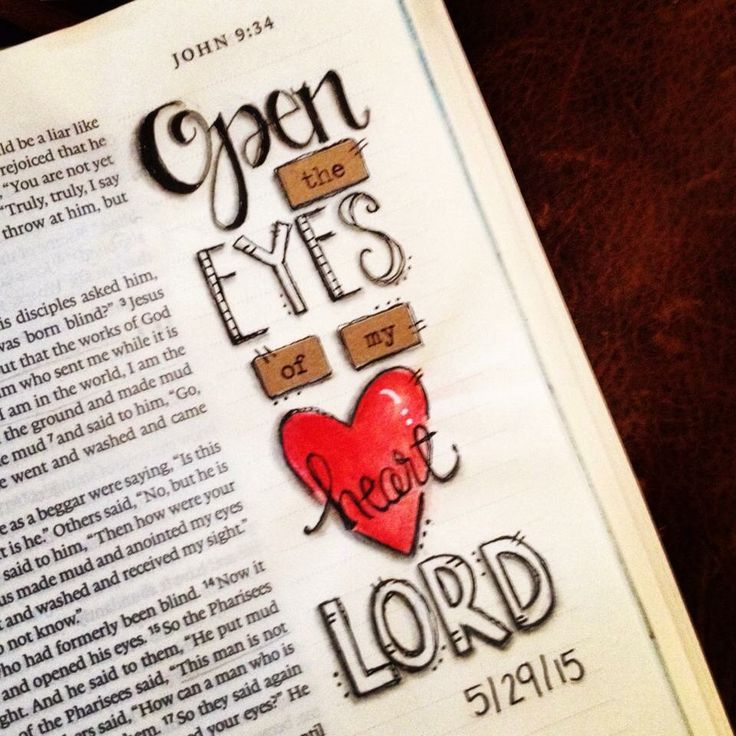 JOHN 9:34
ld be a liar like
rejoiced that he
"You are not yet
"Truly, truly, I say
throw at him, but
is disciples asked him,
was born blind?" 3 Jesus
ut that the works of God
m who sent me while it is
I am in the world, I am the
the ground and made mud
e mud 7 and said to him, "Go,
e went and washed and came
e as a beggar were saying, "Is this
t is he." Others said, "No, but he is
said to him, "Then how were your
us made mud and anointed my eyes
t and washed and received my sight."
o not know."
ho had formerly been blind. 14 Now it
and opened his eyes. 15 So the Pharisees
ght. And he said to them, "He put mud
of the Pharisees said, "This man is not
thers said, "How can a man who is
m. 17 So they said again
d your eyes?" He
until
Open
the
EYES
of my
heart
LORD
5/29/15